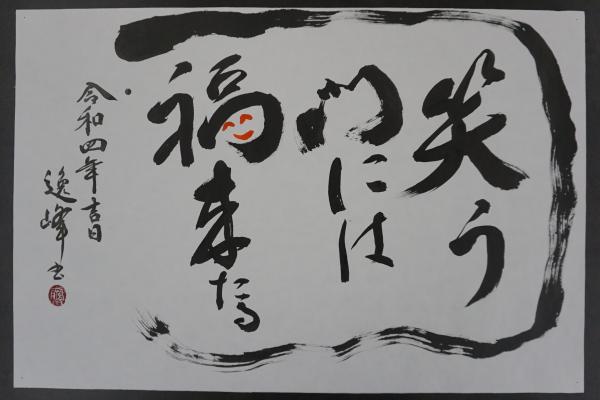 笑う
門には
福来たる
令和四年吉日
逸峰書